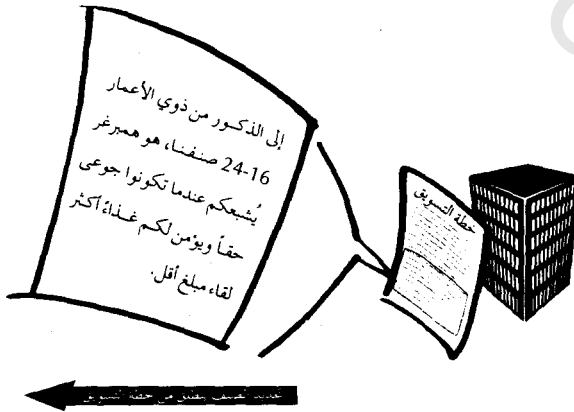 إلى الذكور من ذوي الأعمار
16-24 صنفنا، هو همبرغر
يُشبعكم عندما تكونوا جوعى
حقاً ويؤمن لكم غذاءً أكثر
لقاء مبلغ أقل.
خطة التسويق
تحديد الصنف ينطلق من خطة التسويق